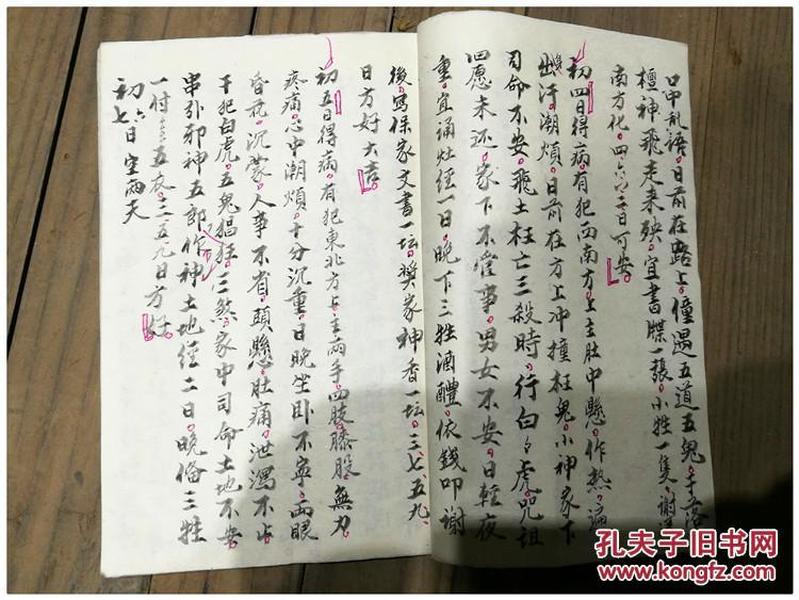 口中乱語日前在路上僮遇五道五鬼于落
檀神飛走来殃宜書牒一張小牲一隻謝送
南方化四六二日可安
初四日得病有犯西南方土主肚中懸作熱
出汗潮煩日前在方上冲撞枉鬼小神家下
司命不安飛土枉亡三殺時行白虎咒詛
回愿未还家下不管事男女不安日輕夜
重宜誦灶經一日晚下三牲酒醴依錢叩謝
後寫保家文書一坛奬家神香一坛三七五九
日方好大吉
初五日得病有犯東北方土主兩手四肢膝股無力
疼痛心中潮煩十分沉重日晚坐卧不寧両眼
昏花沉蒙人事不省頭懸肚痛泄瀉不止
干犯白虎五鬼猖狂三煞家中司命土地不安
串引邪神五郎作神土地經二日晚俻三牲
一付五衣三五九日方好
初六七日空兩天
孔夫子旧书网
www.kongfz.com